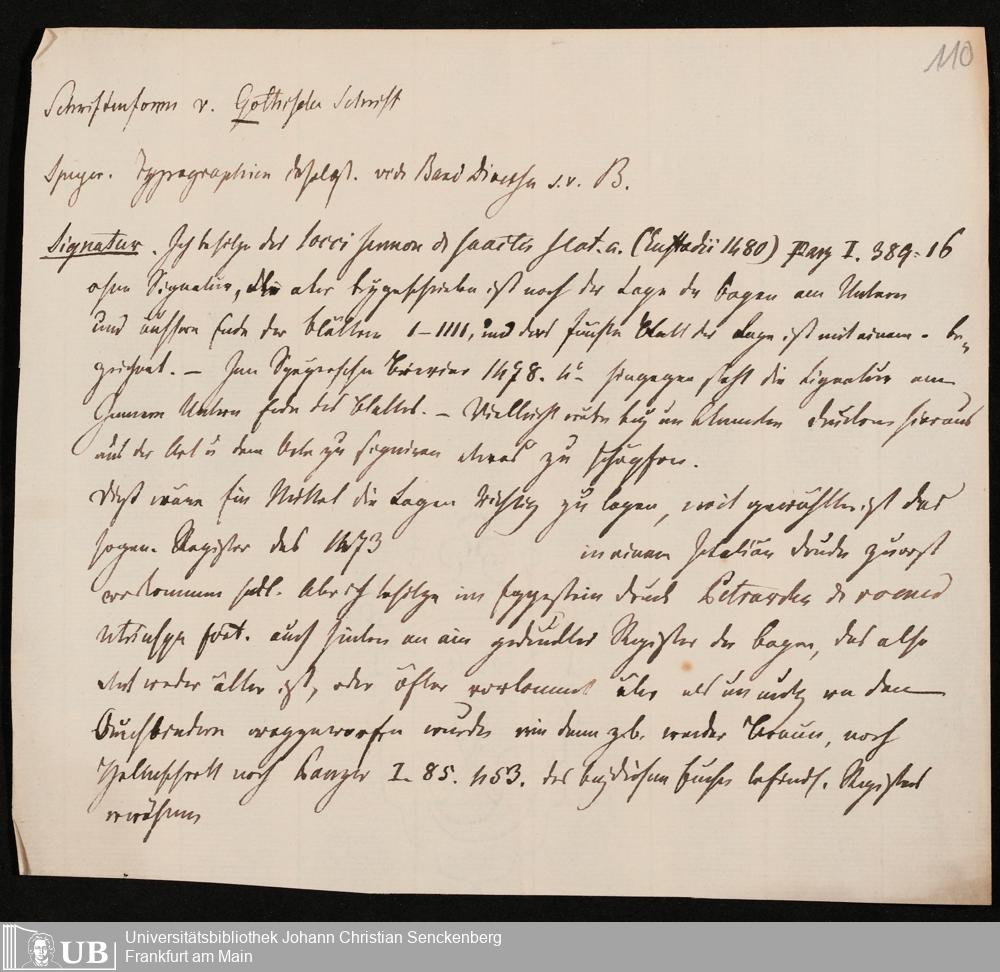 110
Schriftenform v. Gothischer Schrift
Speyer. Typographien daselbst. vide Band Diverse s. v. B.
Signatur. Ich besitze des Socci sermon de sanctis s. l. et. a. (Eustadii 1480) Panz I. 389. 16
ohne Signatur, die aber beygeschrieben ist nach der Lage der Bogen am Untern
und äussern Ende der Blätter 1–1111, und das fünfte Blatt der Lage ist mit einem - be„
zeichnet. — Im Speyerschen Brevier 1478. 4° hingegen steht die Signatur am
Innern Untern Ende des Blattes. — Vielleicht wäre bey unbekannten Drucken hieraus
aus der Art u dem Orte zu signiren etwas zu schöpfen.
Dieß wäre ein Mittel die Lagen richtig zu legen, weit gewählter ist das
sogen. Register das 1473 in einem Italiän Drucke zuerst
vorkommen soll. Aber ich besitze im Eggestein Druck Petrarcha de remed
utriusque fort. auch hinten an ein gedrucktes Register der Bogen, das also
entweder älter ist, oder öfter vorkommt aber als unnütz von den
Buchbindern weggeworfen wurde wie denn zb. weder Braun, noch
Helmschrott noch Panzer I. 85. 453. des bey diesem Buche befindl. Registers
erwähnen
UB
Universitätsbibliothek Johann Christian Senckenberg
Frankfurt am Main